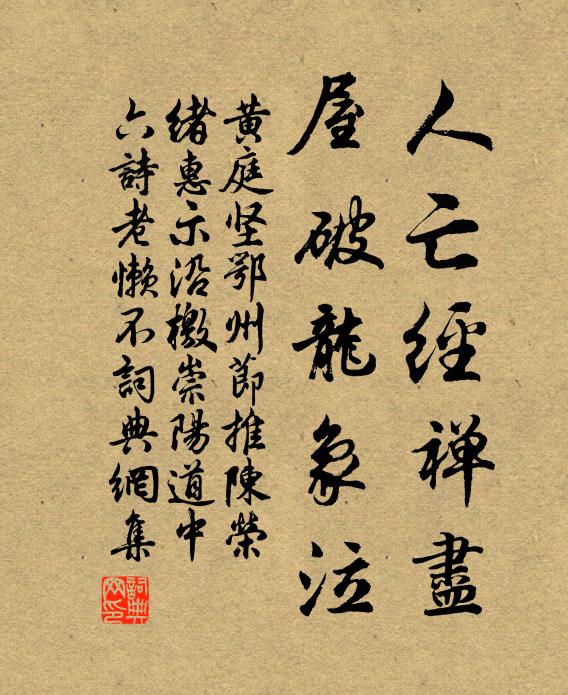 人亡經禅盡
屋破龍象泣
黄庭坚鄂州節推陳榮
緒惠示沿檄崇陽道中
六詩老懒不詞典網集
詞典網印